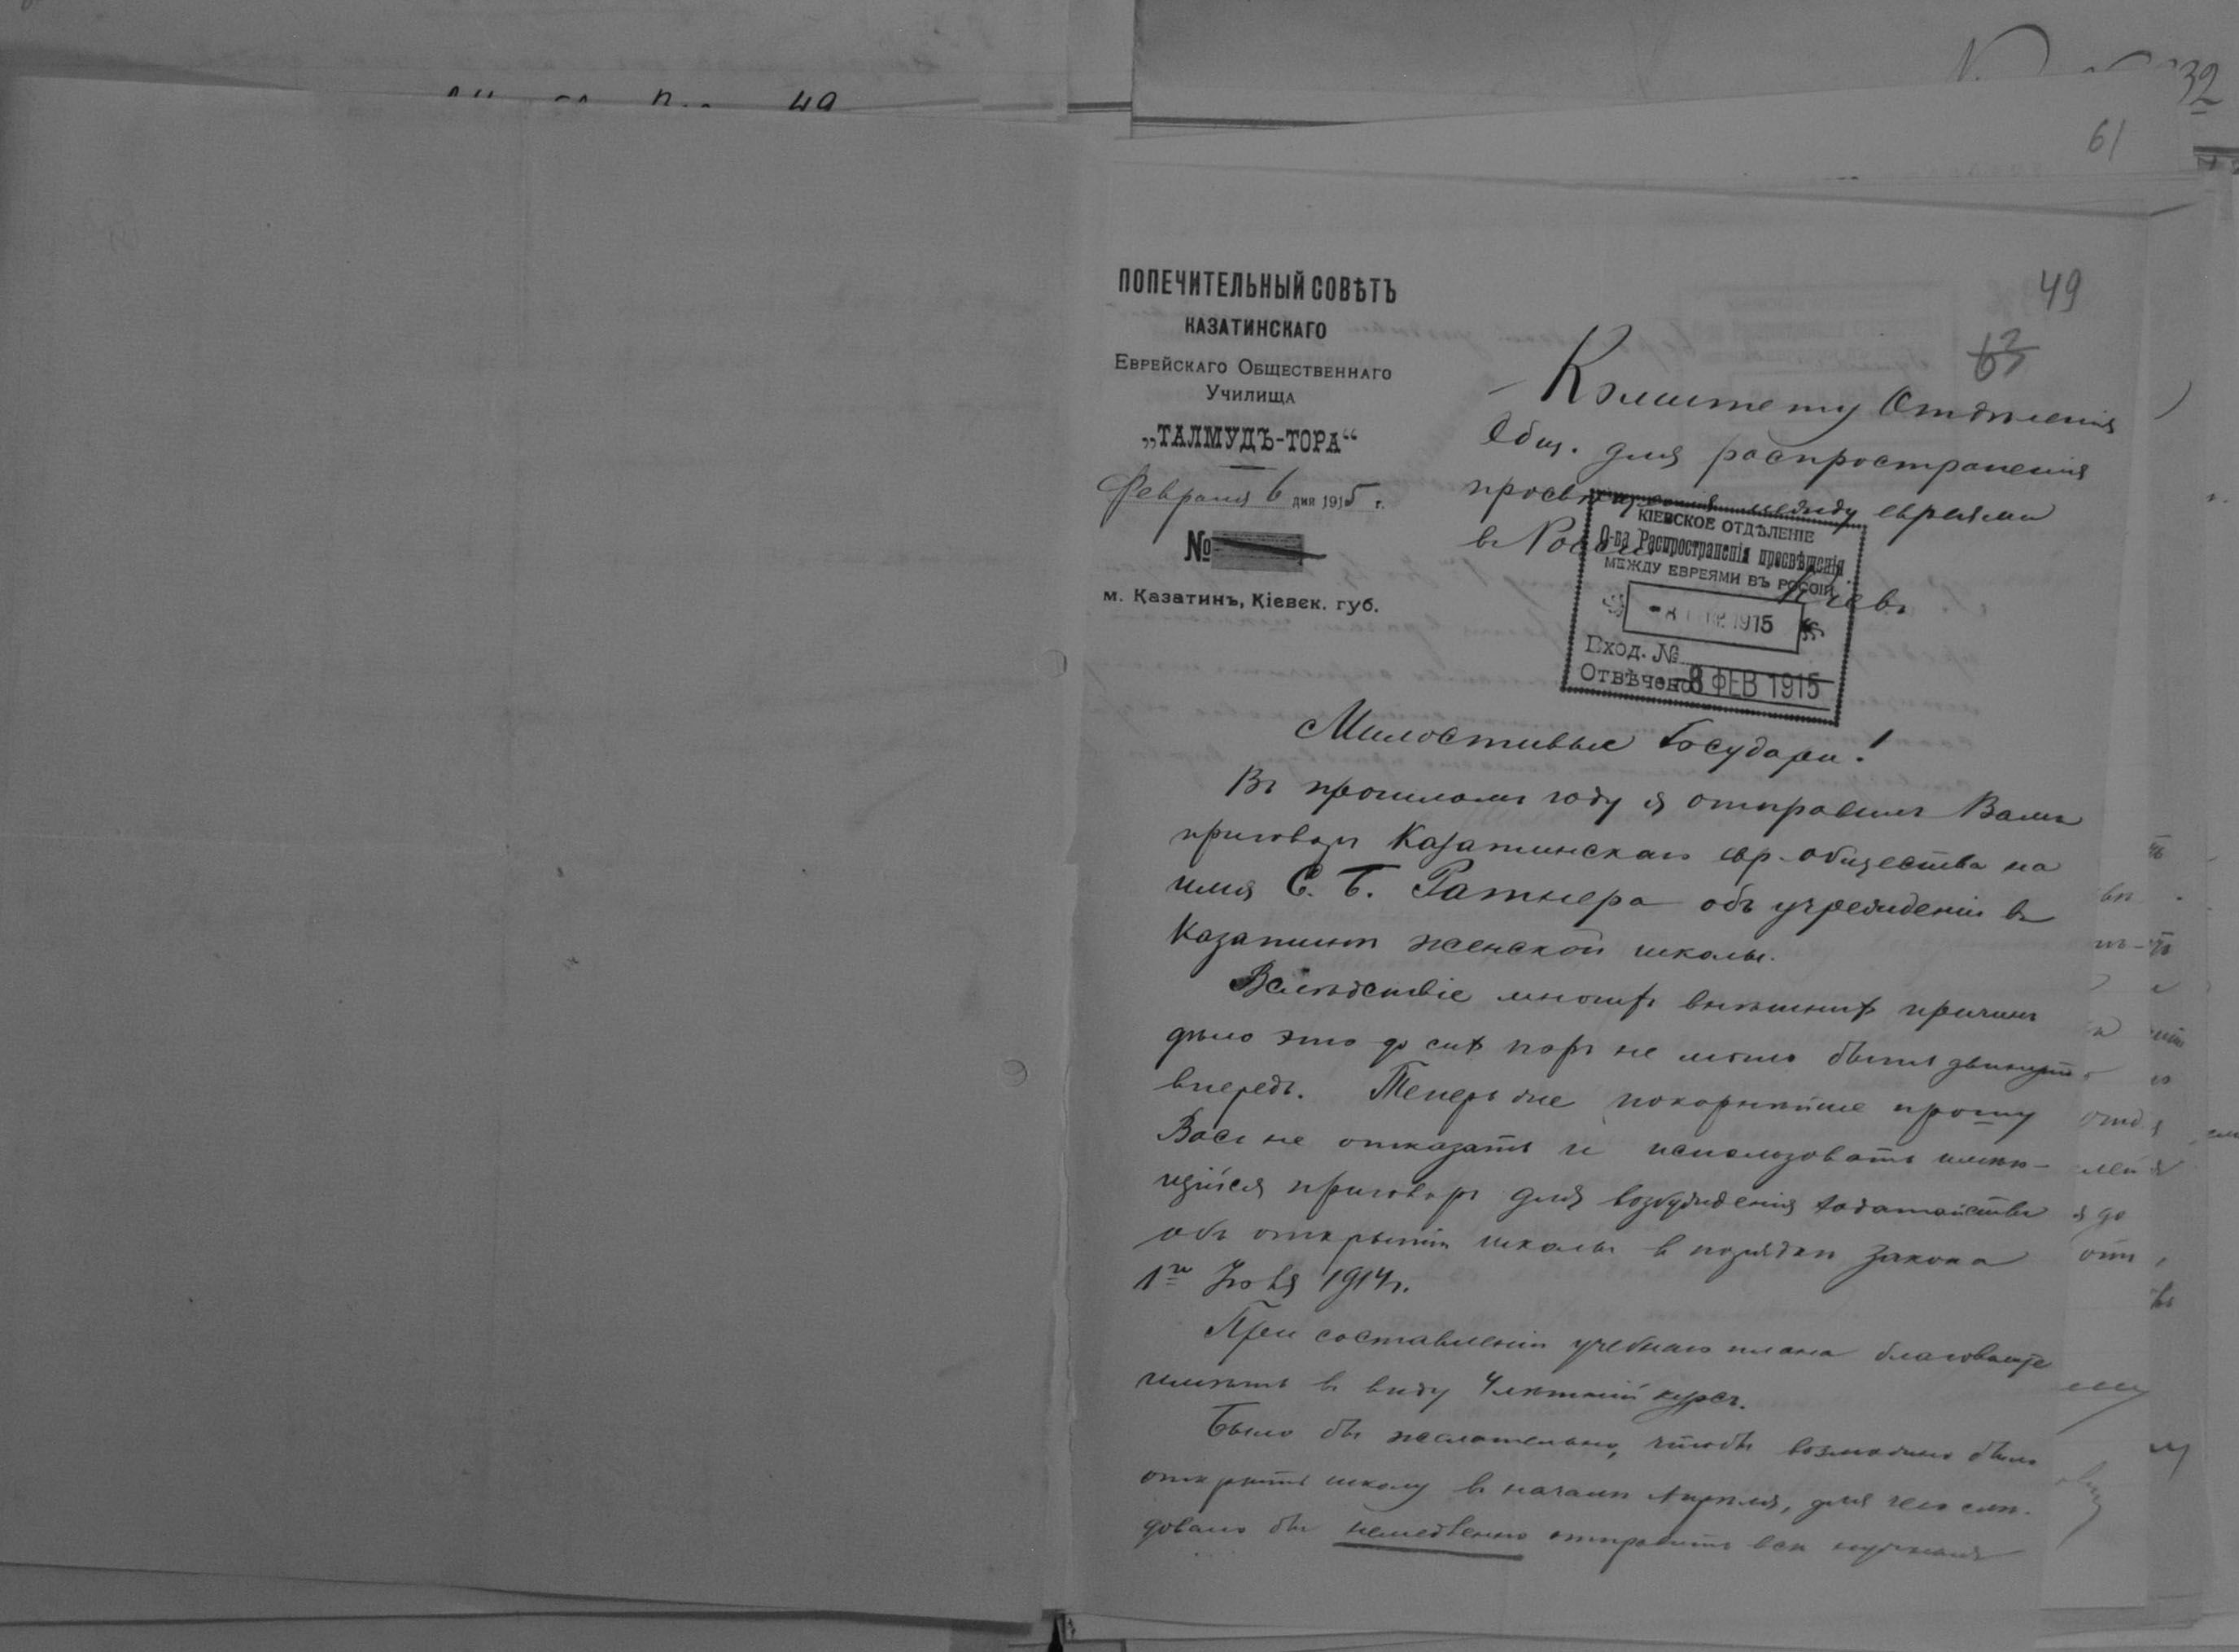 32
61
49
49
63
ПОПЕЧИТЕЛЬНЫЙ СОВѢТЪ
КАЗАТИНСКАГО
ЕВРЕЙСКАГО ОБЩЕСТВЕННАГО
УЧИЛИЩА
„ТАЛМУДЪ-ТОРА“
Февраля 6 дня 1915 г.
№
м. Казатинъ, Кіевск. губ.
Комитету Отдѣленія
Общ. для распространенія
просвѣщенія между евреями
въ Россіи
Кіевъ
КІЕВСКОЕ ОТДѢЛЕНІЕ
О-ва Распространенія просвѣщенія
МЕЖДУ ЕВРЕЯМИ ВЪ РОССІИ.
-8 1915
Вход. №
Отвѣчено -8 ФЕВ 1915
Милостивые Государи!
Въ прошломъ году я отправилъ Вамъ
приговоръ Казатинскаго евр. общества на
имя С. Б. Ратнера объ учрежденіи въ
Казатинѣ женской школы.
Вслѣдствіе многихъ внѣшнихъ причинъ
дѣло это до сихъ поръ не могло быть двинуто
впередъ. Теперь же покорнѣйше прошу
Васъ не отказать и использовать имѣю-
щійся приговоръ для возбужденія ходатайства
объ открытіи школы въ порядкѣ закона
1го Іюля 1914 г.
При составленіи учебнаго плана благоволите
имѣть въ виду 4лѣтній курсъ.
Было бы желательно, чтобы возможно было
открыть школу въ началѣ Апрѣля, для чего слѣ-
довало бы немедленно отправить всѣ нужныя